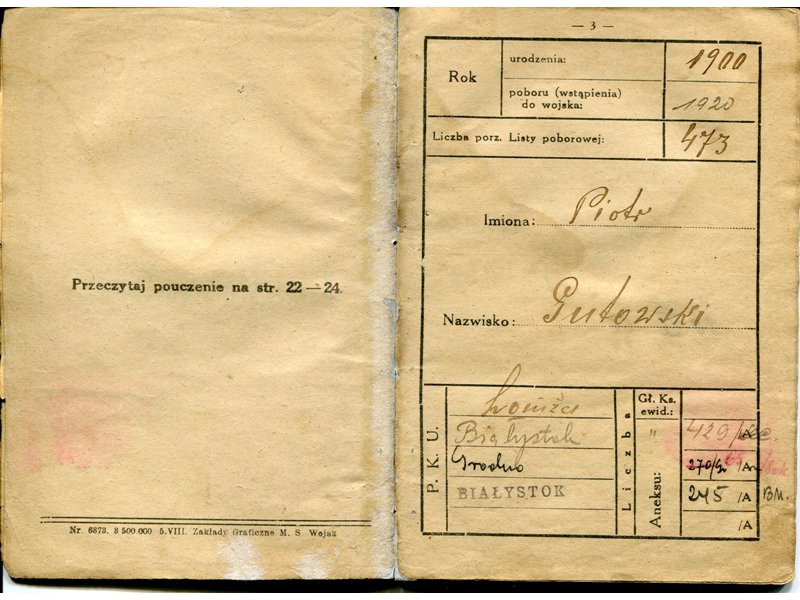 Przeczytaj pouczenie na str. 22—24.
Nr. 6873. 3 500 000 5.VIII. Zakłady Graficzne M. S. Wojsk
— 3 —
Rok
urodzenia: 1900
poboru (wstąpienia) do wojska: 1920
Liczba porz. Listy poborowej: 473
Imiona: Piotr
Nazwisko: Gutowski
P. K. U.
Łomża
Białystok
Grodno
BIAŁYSTOK
Liczba
Gł. Ks. ewid.:
" 429/
Aneksu:
270/ /A
245 /A BM.
/A